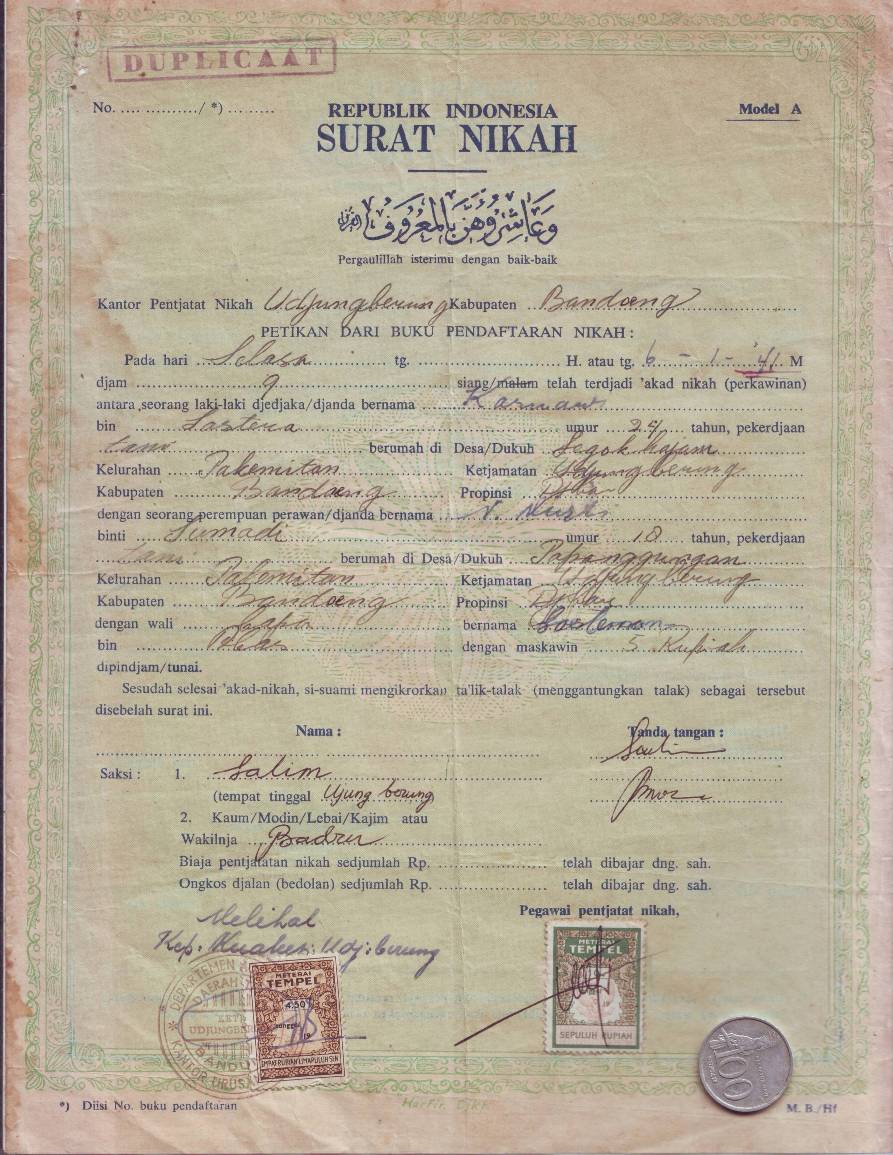 DUPLICAAT
No. .... .........../ *) .........
REPUBLIK INDONESIA
Model A
SURAT NIKAH
وَعَاشِرُوهُنَّ بِالْمَعْرُوفِ
Pergaulillah isterimu dengan baik-baik
Kantor Pentjatat Nikah Udjungberung Kabupaten Bandoeng
PETIKAN DARI BUKU PENDAFTARAN NIKAH :
Pada hari Selasa tg. H. atau tg. 6 - 1 - '41 M
djam 9 siang/malam telah terdjadi 'akad nikah (perkawinan)
antara seorang laki-laki djedjaka/djanda bernama
bin Sasteua umur 24 tahun, pekerdjaan
tani berumah di Desa/Dukuh
Kelurahan Pakemitan Ketjamatan Udjungberung
Kabupaten Bandoeng Propinsi
dengan seorang perempuan perawan/djanda bernama
binti Sumadi umur 18 tahun, pekerdjaan
tani berumah di Desa/Dukuh Papanggungan
Kelurahan Pakemitan Ketjamatan Udjungberung
Kabupaten Bandoeng Propinsi
dengan wali bernama
bin dengan maskawin 5 Rupiah
dipindjam/tunai.
Sesudah selesai 'akad-nikah, si-suami mengikrorkan ta'lik-talak (menggantungkan talak) sebagai tersebut
disebelah surat ini.
Nama : Tanda tangan :
Saksi : 1. Salim
(tempat tinggal Ujung berung)
2. Kaum/Modin/Lebai/Kajim atau
Wakilnja Badru
Biaja pentjatatan nikah sedjumlah Rp. telah dibajar dng. sah.
Ongkos djalan (bedolan) sedjumlah Rp. telah dibajar dng. sah.
Pegawai pentjatat nikah,
Melihat
Kep. Udj. berung
METERAI
TEMPEL
4.50
EMPAT RUPIAH LIMAPULUH SEN
METERAI
TEMPEL
SEPULUH RUPIAH
DEPARTEMEN
DAERAH
UDJUNGBE
BANDU
KANTOR URUSA
100
*) Diisi No. buku pendaftaran
M. B./Hf